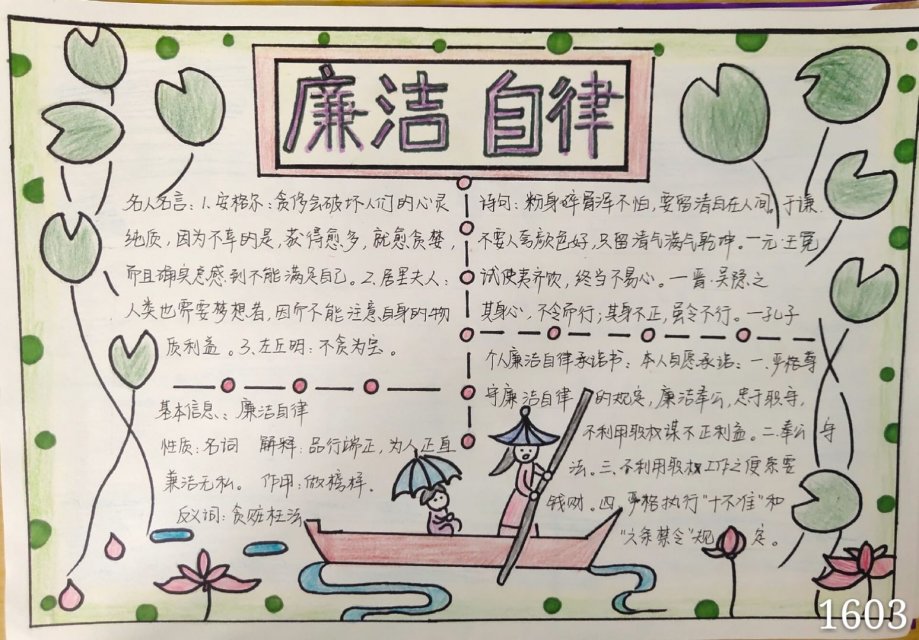 廉洁 自律
名人名言：1、安格尔：贪侈会破坏人们的心灵
纯质，因为不幸的是，获得愈多，就愈贪婪，
而且确实感到不能满足自己。2.居里夫人：
人类也需要梦想者，因而不能注意自身的物
质利益。3、左丘明：不贪为宝。
基本信息：廉洁自律
性质：名词 解释：品行端正，为人正直
廉洁无私。 作用：做榜样.
反义词：贪赃枉法
诗句：粉身碎骨浑不怕，要留清白在人间。于谦
不要人夸颜色好，只留清气满气乾坤。—元·王冕
试使夷齐饮，终当不易心。—晋·吴隐之
其身心，不令而行；其身不正，虽令不行。—孔子
个人廉洁自律承诺书：本人自愿承诺：一.严格尊
守廉洁自律的规定，廉洁奉公，忠于职守，
不利用职权谋不正利益。二.奉公守
法。三.不利用职权工作之便索要
钱财。四.严格执行“十不准”和
“六条禁令”规定。
1603